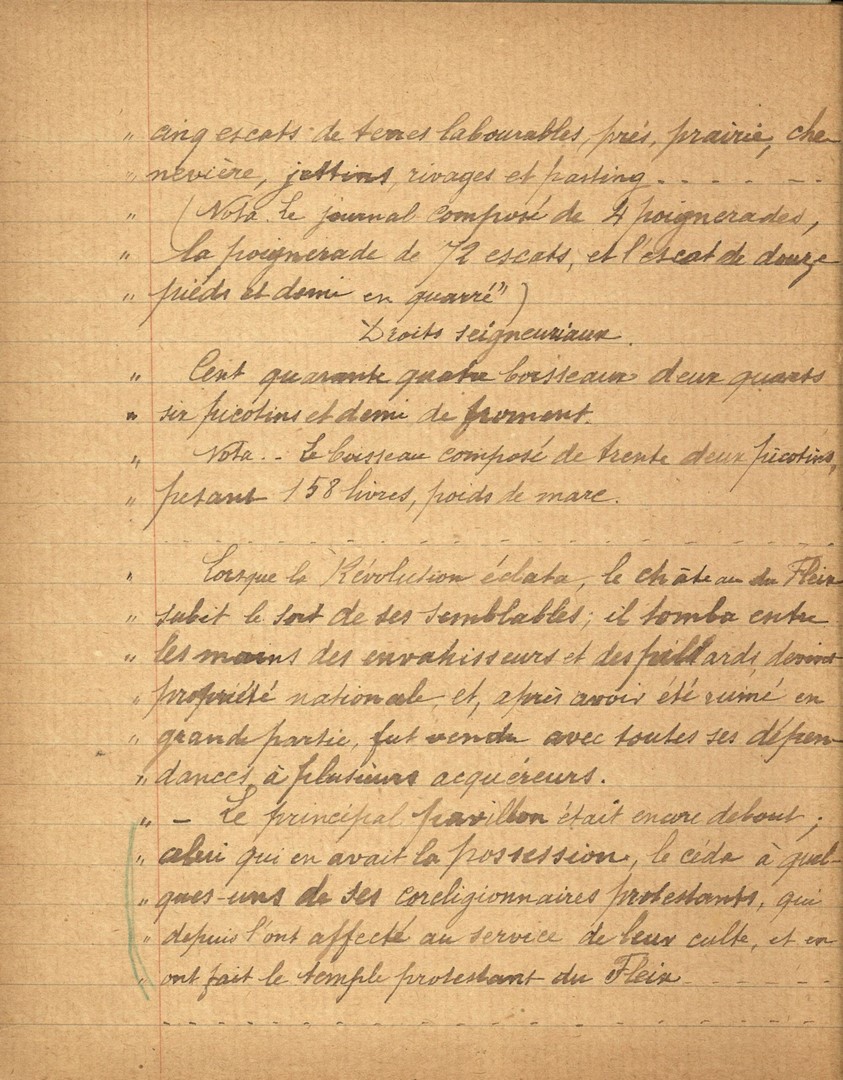 „ cinq escats de terres labourables, prés, prairie, che-
„ nevière, jettins, rivages et pasting. - - - - - -
„ (Nota. Le journal composé de 4 poignerades,
„ la poignerade de 72 escats, et l'escat de douze
„ pieds et demi en quarré")
Droits seigneuriaux.
„ Cent quarante quatre boisseaux deux quarts
„ six picotins et demi de froment.
„ Nota. - Le boisseau composé de trente deux picotins,
„ pesant 158 livres, poids de marc.
- - - - - - - - - - - - - - - - - -
„ Lorsque la Révolution éclata, le château du Fleix
„ subit le sort de ses semblables; il tomba entre
„ les mains des envahisseurs et des pillards devint
„ propriété nationale et, après avoir été ruiné en
„ grande partie, fut vendu avec toutes ses dépen-
„ dances à plusieurs acquéreurs.
„ - Le principal pavillon était encore debout;
„ celui qui en avait la possession, le céda à quel-
„ ques-uns de ses coreligionnaires protestants, qui
„ depuis l'ont affecté au service de leur culte, et en
„ ont fait le temple protestant du Fleix - - - - - -
- - - - - - - - - - - - - - - - - -